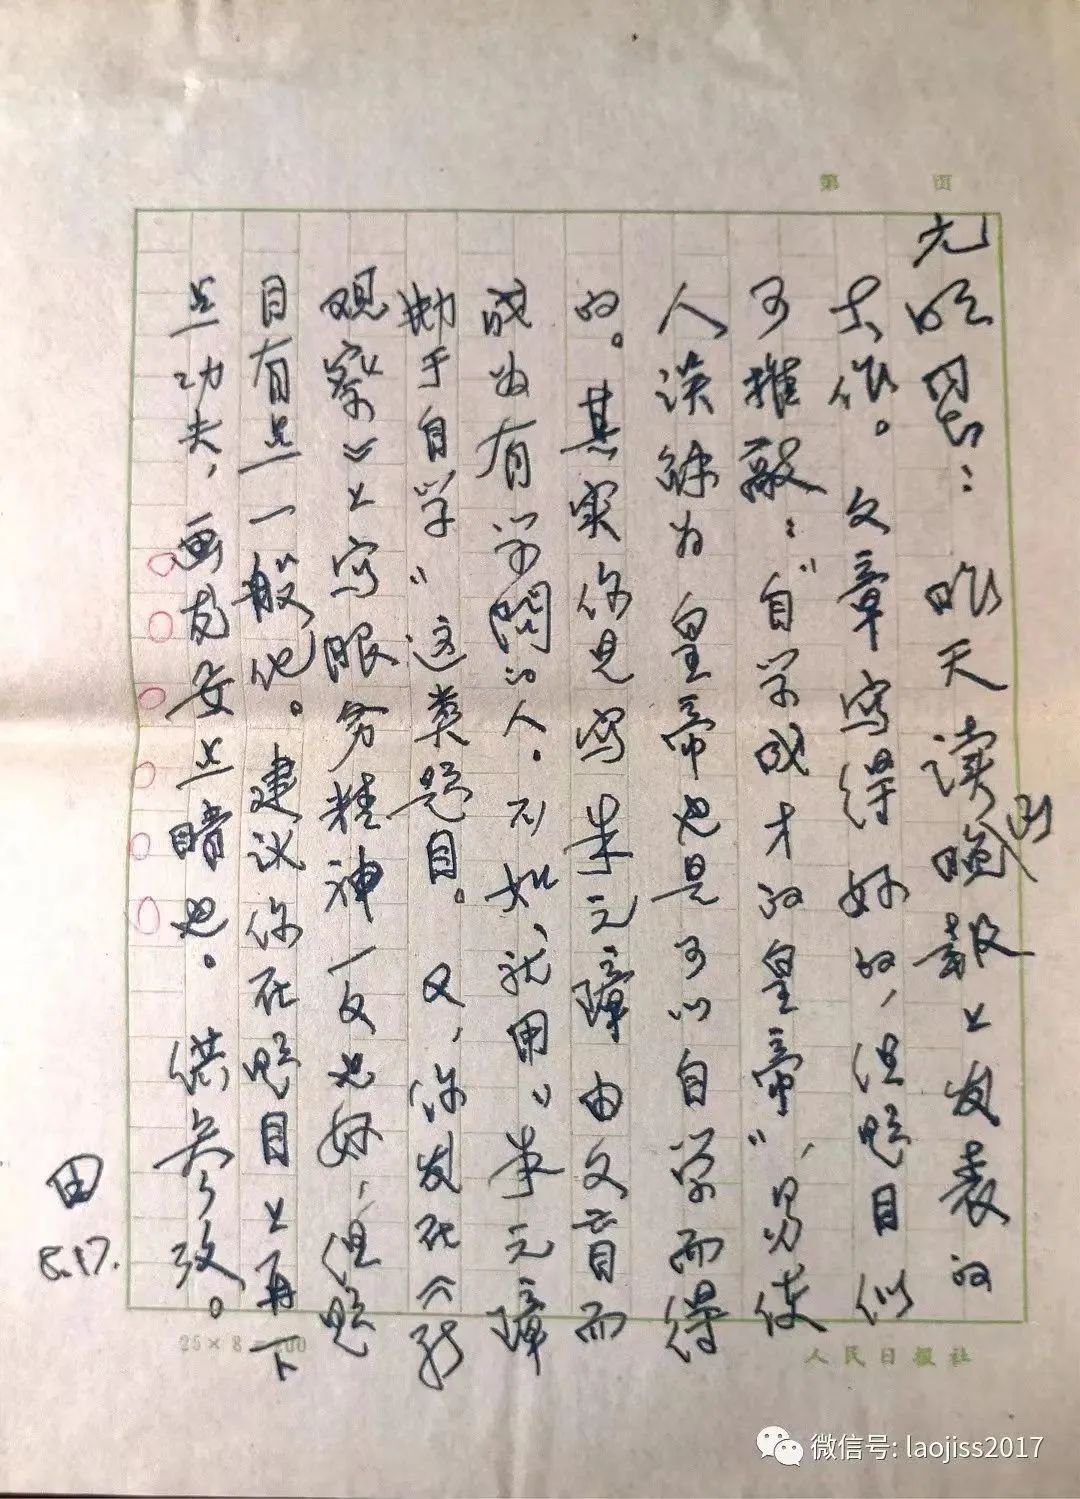 第 页
光明同志：昨天读到晚报上发表的
大作。文章写得好的，但题目似
可推敲：“自学成才的皇帝”，易使
人误解为皇帝也是可以自学而得
的。其实你是写朱元璋由文盲而
成为有学问的人。不如就用“朱元璋
勤于自学”这类题目。又，你发在《新
观察》上写服务精神一文也好，但题
目有点一般化。建议你在题目上再下
点功夫，画龙要点睛也。供参攷。
田
8.17.
25×8=200
人民日报社
微信号: laojiss2017